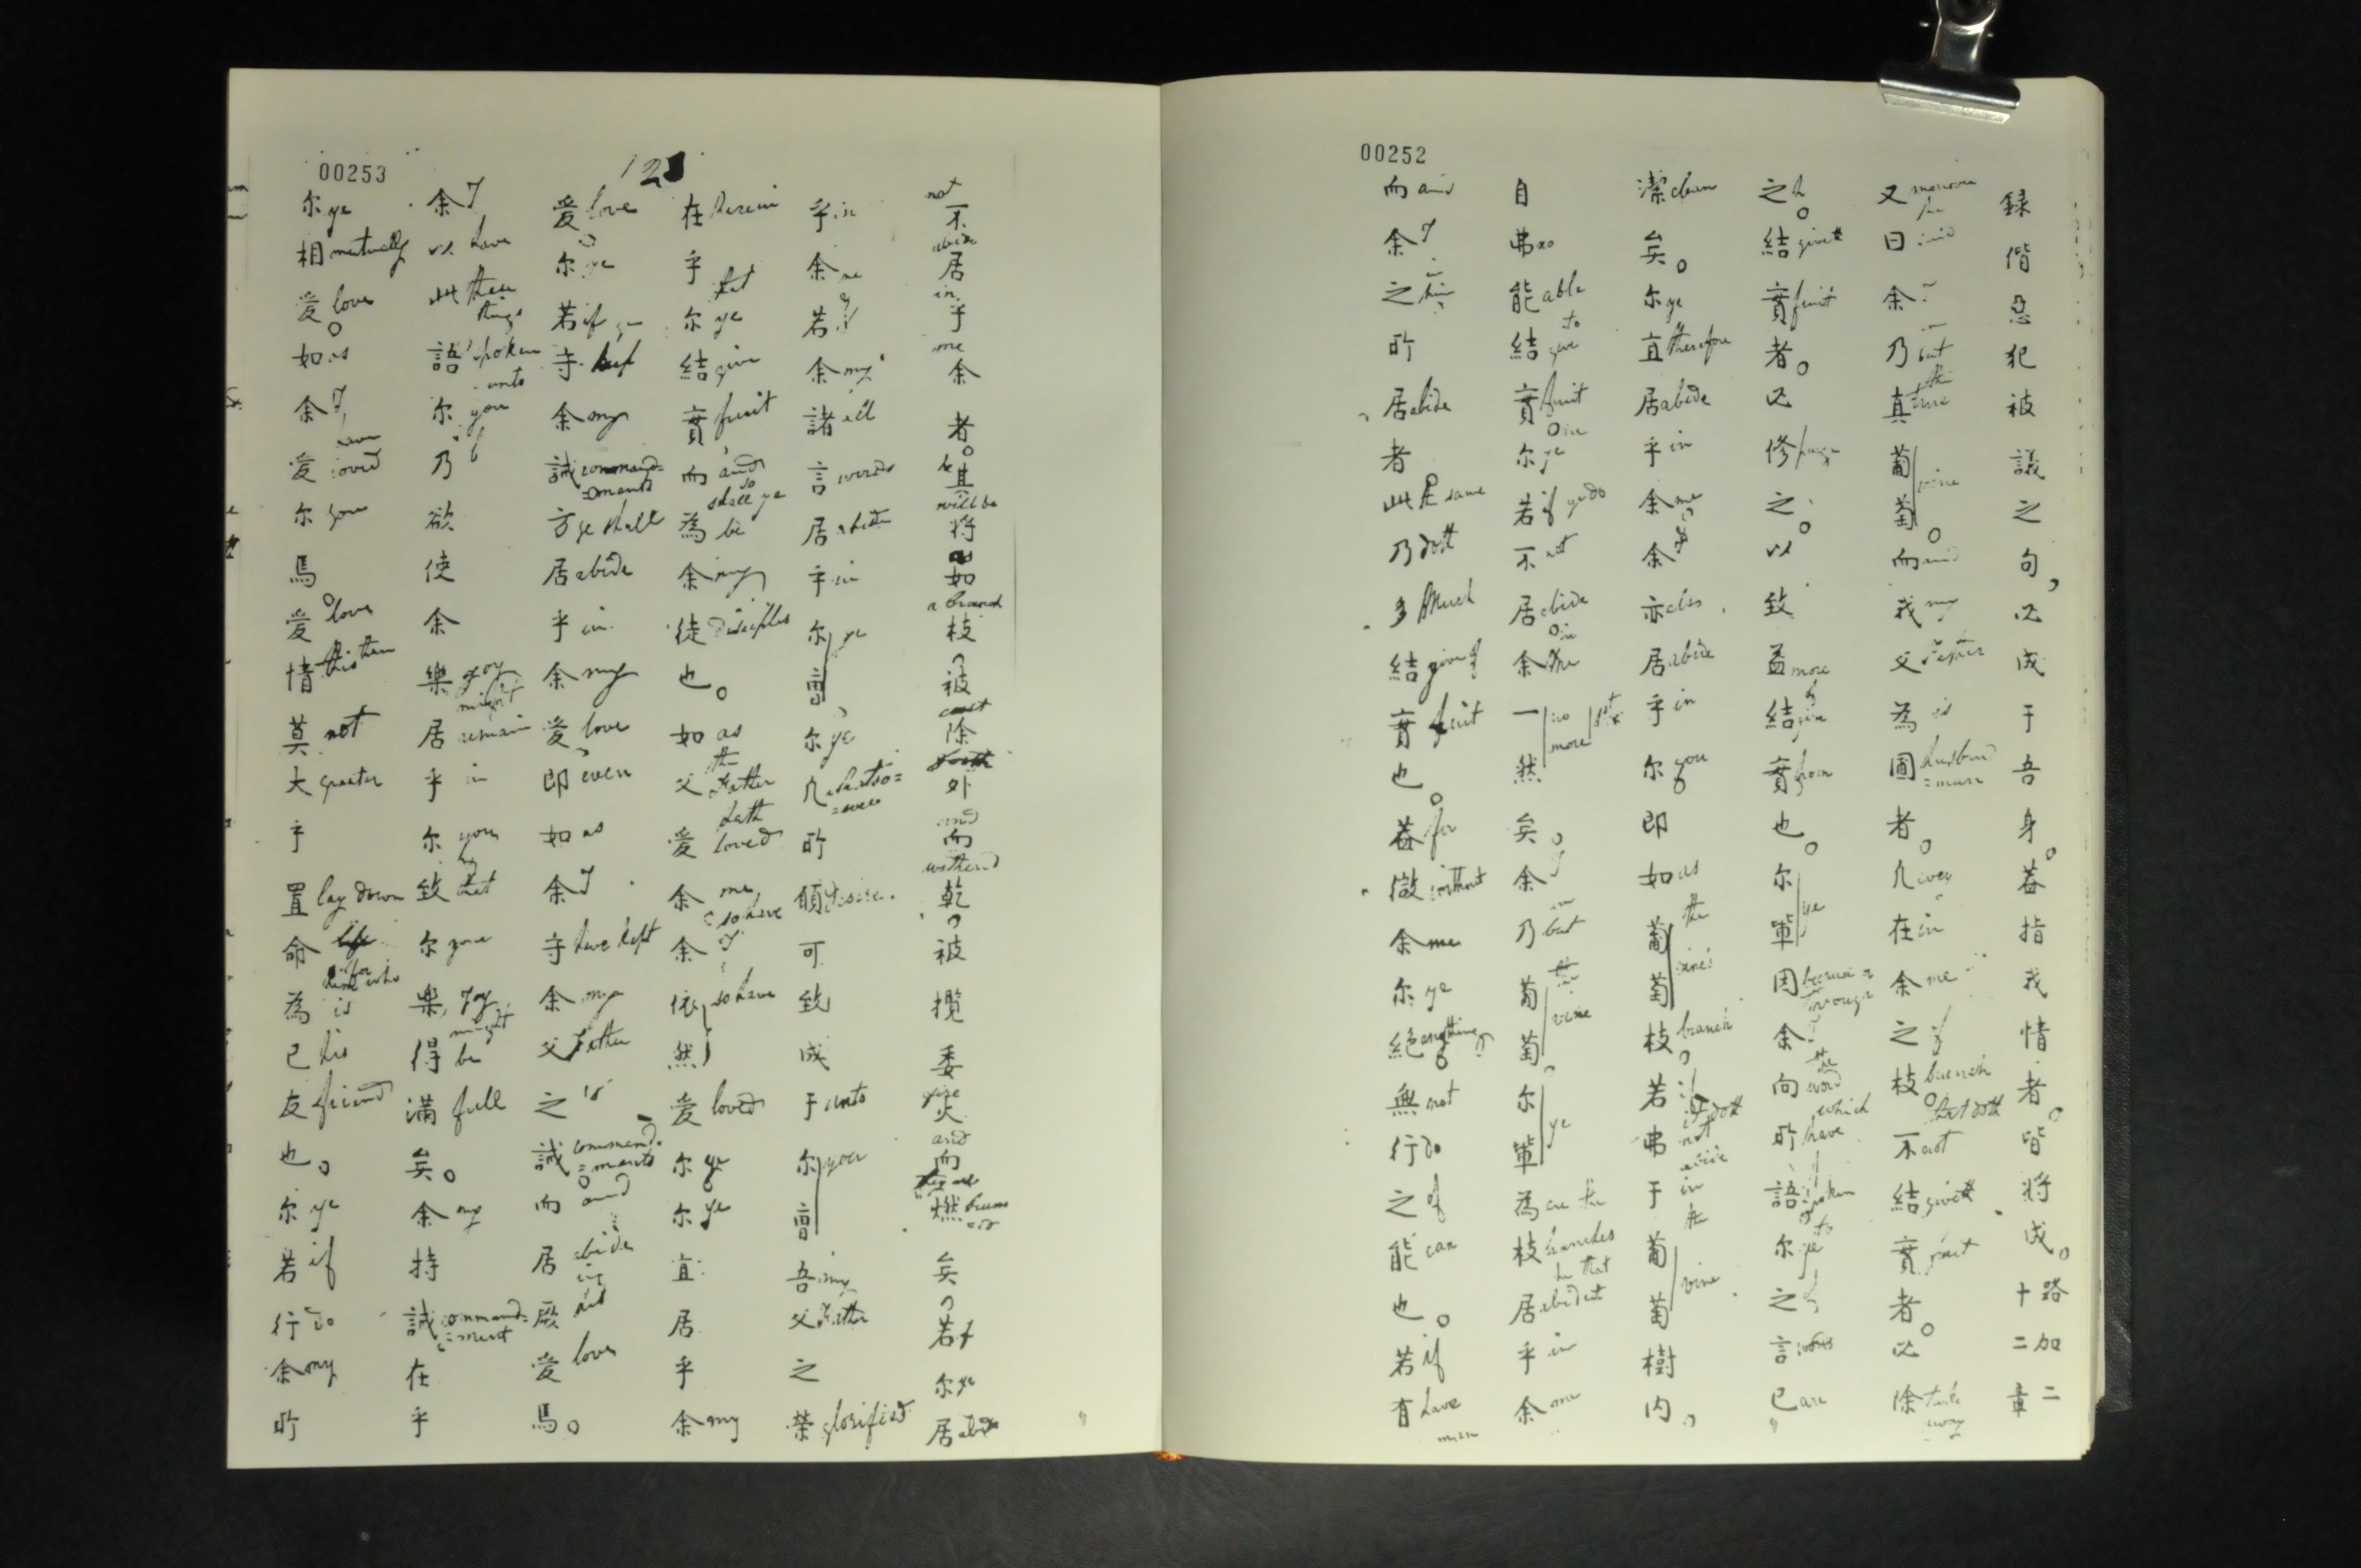 00252
録偕惡犯被議之句,必成于吾身。葢指我情者。皆將成。路加二十二章
又 moreover he 曰 said 余 I 乃 but 真 the true 葡萄 vine 。而 and 我 my 父 Father 為 is 圃 husband=man 者。凡 every 在 in 余 me 之 of 枝 branch 。 that doth 不 not 結 giveth 實 fruit 者。必除 take away
之。結 giveth 實 fruit 者。必修 purge 之。以致益 more 結 give 實 from 也。尔軰 ye 因 余 I 向 the word 所 which have 語 spoken 尔 to ye 之 of 言 已 are
潔 clean 矣。尔 ye 宜 therefore 居 abide 乎 in 余 me 余 I 亦 also 居 abide 乎 in 尔 you 即如 as 葡萄 the vines 枝 branch 若 if 弗 doth not abide 于 in 葡萄 the vine 樹内
自弗 no 能 able 結 to give 實 fruit 。尔 ye 若 if ye do 不 not 居 abide 余 in me 一然 no more 矣。余 I 乃 but 葡萄 the vine 尔軰 ye 為 are the 枝 branches 居 he that abideth 乎 in 余 me
而 and 余 I 之 him 所居 abide 者此 same 乃 doth 多 much 結 giveth 實 fruit 也。葢 for 微 without 余 me 尔 ye 絕 anything 無 not 行 do 之 of 能 can 也。若 if 有 have man
00253
123
不 not 居 abide 乎 in 余 me 者。其將 will be 如 as 枝 a branch 被除 cast 外 forth 而 and 乾 withered 被攬委火 fire 而 and 燃 burned 矣 若 if 尔 ye 居 abide
乎 in 余 me 若 if 余 my 諸 all 言 words 居 abide 乎 in 尔曹 ye 尔 ye 凡 whatso=ever 所願 desire 可致成于 unto 尔曹 you 吾 my 父 Father 之榮 glorified
在 herein 乎尔 that ye 結 give 實 fruit 而 and so 為 shall ye be 余 my 徒 disciples 也。如 as 父 the Father 愛 hath loved 余 me 余 so have I 依然 so have 愛 loved 尔 ye 尔 ye 宜居乎余 my
愛 love 尔 ye 若 if 守 keep 余 my 誡 command=ments 方 ye shall 居 abide 乎 in 余 my 愛 love 即 even 如 as 余 I 守 have kept 余 my 父 Father 之 's 誡 command=ments 而 and 居 abide in 厥 his 愛 love 焉。
余 I 以 have 此 these things 語 spoken unto 尔 you 乃欲使余樂 my joy might 居 remain 乎 in 尔 you 致 that 尔 your 樂 joy might 得 be 滿 full 矣。余 my 持誡 command=ment 在乎
尔 ye 相 mutually 愛 love 。如 as 余 I 愛 have loved 尔 you 焉。愛 love 情 this than 莫 not 大 greater 乎置 lay down 命 life 為 for is 已 his 友 friend 也。尔 ye 若 if 行 do 余 my 所